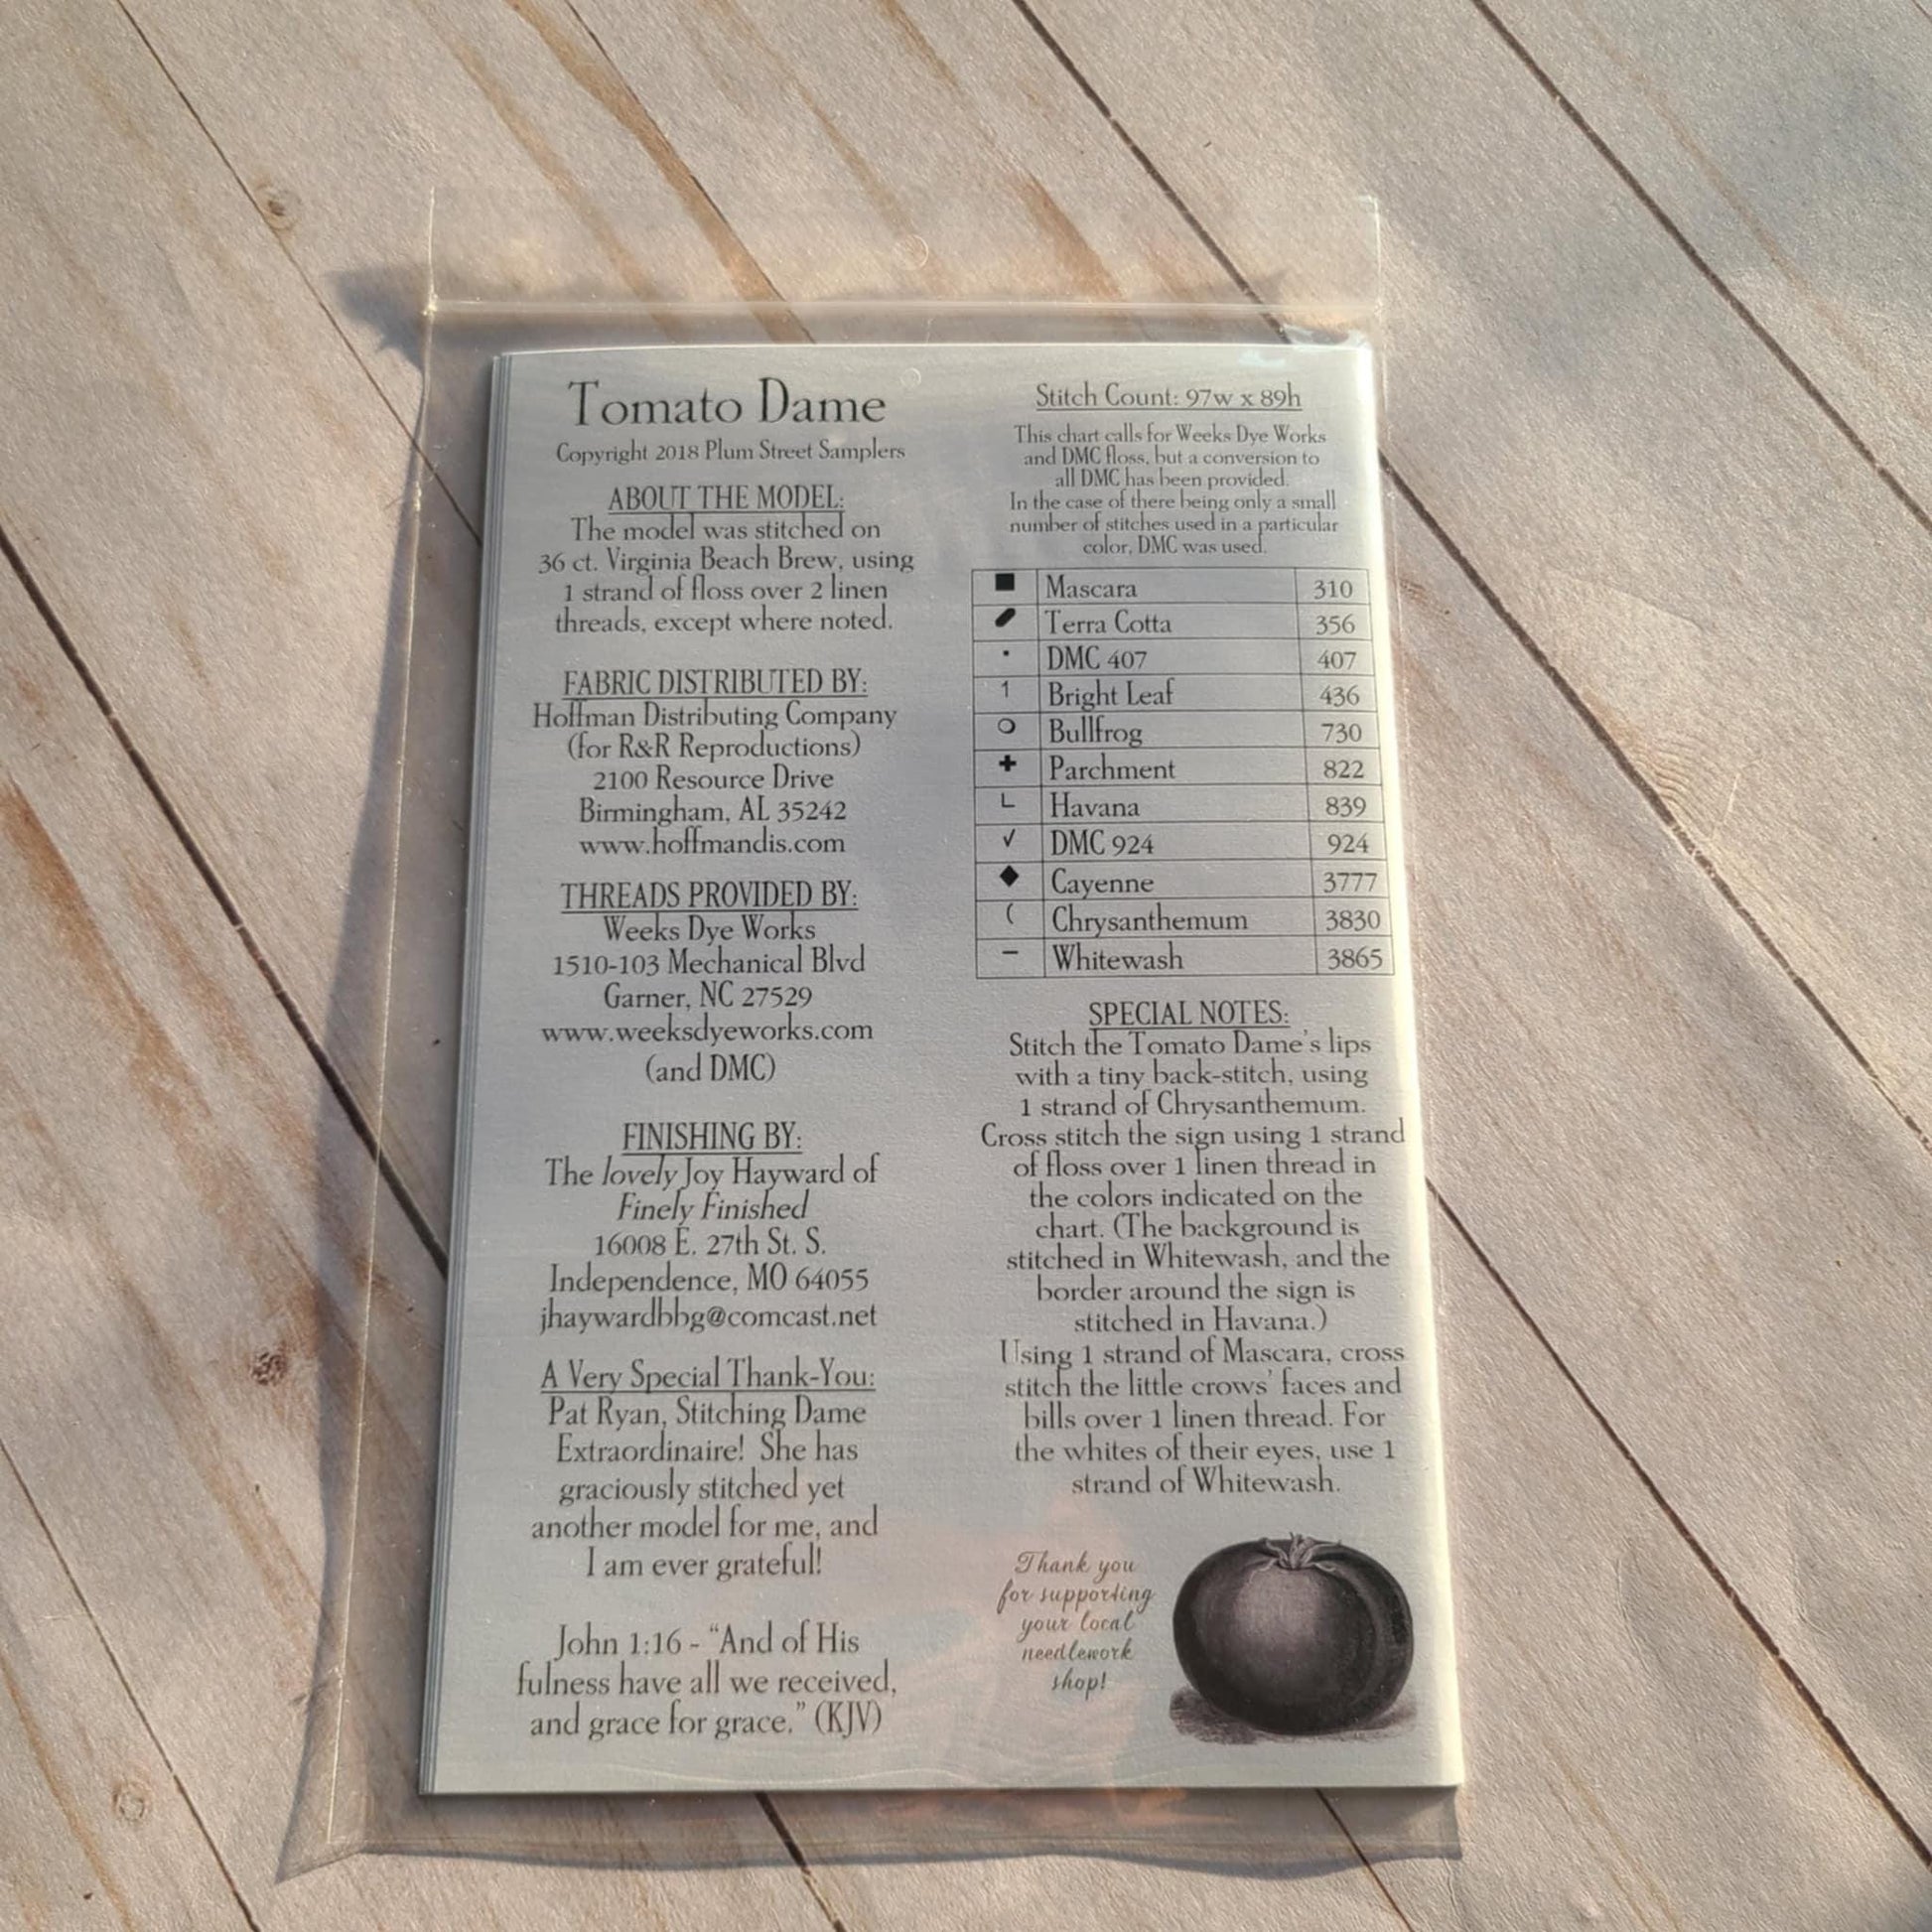 Tomato Dame
Copyright 2018 Plum Street Samplers
ABOUT THE MODEL:
The model was stitched on
36 ct. Virginia Beach Brew, using
1 strand of floss over 2 linen
threads, except where noted.
FABRIC DISTRIBUTED BY:
Hoffman Distributing Company
(for R&R Reproductions)
2100 Resource Drive
Birmingham, AL 35242
www.hoffmandis.com
THREADS PROVIDED BY:
Weeks Dye Works
1510-103 Mechanical Blvd
Garner, NC 27529
www.weeksdyeworks.com
(and DMC)
FINISHING BY:
The lovely Joy Hayward of
Finely Finished
16008 E. 27th St. S.
Independence, MO 64055
jhaywardbbg@comcast.net
A Very Special Thank-You:
Pat Ryan, Stitching Dame
Extraordinaire! She has
graciously stitched yet
another model for me, and
I am ever grateful!
John 1:16 - “And of His
fulness have all we received,
and grace for grace.” (KJV)
Stitch Count: 97w x 89h
This chart calls for Weeks Dye Works
and DMC floss, but a conversion to
all DMC has been provided.
In the case of there being only a small
number of stitches used in a particular
color, DMC was used.
■ Mascara 310
Terra Cotta 356
· DMC 407 407
1 Bright Leaf 436
O Bullfrog 730
+ Parchment 822
L Havana 839
√ DMC 924 924
◆ Cayenne 3777
( Chrysanthemum 3830
– Whitewash 3865
SPECIAL NOTES:
Stitch the Tomato Dame's lips
with a tiny back-stitch, using
1 strand of Chrysanthemum.
Cross stitch the sign using 1 strand
of floss over 1 linen thread in
the colors indicated on the
chart. (The background is
stitched in Whitewash, and the
border around the sign is
stitched in Havana.)
Using 1 strand of Mascara, cross
stitch the little crows' faces and
bills over 1 linen thread. For
the whites of their eyes, use 1
strand of Whitewash.
Thank you
for supporting
your local
needlework
shop!